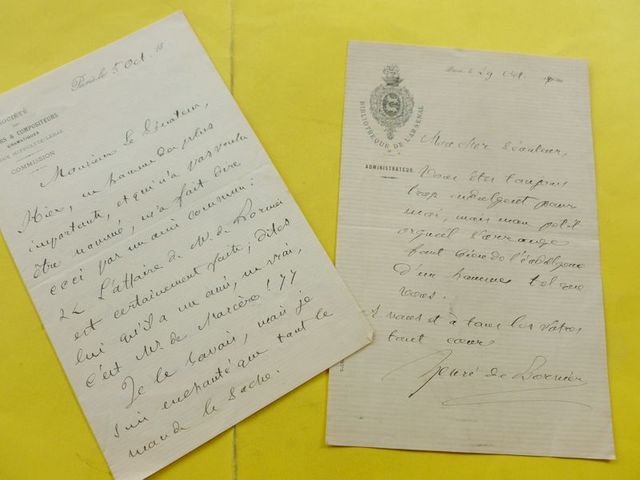 Paris, le 5 Oct.
SOCIÉTÉ
DES
RS & COMPOSITEURS
DRAMATIQUES
RUE HIPPOLYTE-LEBAS
COMMISSION
Monsieur le Sénateur,
Hier, un homme des plus
importants, et qui n'a pas voulu
être nommé, m'a fait dire
ceci par un ami commun:
"L'affaire de Mr. de Bornier
est certainement faite; dites
lui qu'il a un ami, un vrai,
c'est Mr de Marcère! "
Je le savais, mais je
suis enchanté que tout le
monde le sache.
Paris, le 29 Oct
BIBLIOTHÈQUE DE L'ARSENAL
ADMINISTRATEUR
Mon cher Sénateur,
Vous êtes toujours
trop indulgent pour
moi, mais mon petit
orgueil s'arrange
fort bien de l'indulgence
d'un homme tel que
vous.
A vous et à tous les vôtres
tout cœur
Henri de Bornier